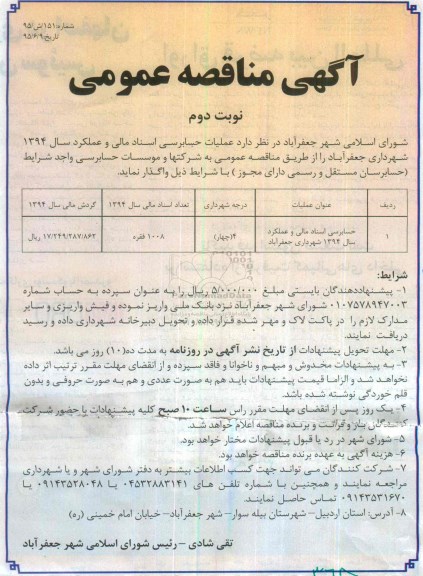 شماره:۱۵۱/ش/۹۵
تاریخ:۹۵/۶/۹
آگهی مناقصه عمومی
نوبت دوم
شورای اسلامی شهر جعفرآباد در نظر دارد عملیات حسابرسی اسناد مالی و عملکرد سال ۱۳۹۴
شهرداری جعفرآباد را از طریق مناقصه عمومی به شرکتها و موسسات حسابرسی واجد شرایط
(حسابرسان مستقل و رسمی دارای مجوز ) با شرایط ذیل واگذار نماید.
ردیف عنوان عملیات درجه شهرداری تعداد اسناد مالی سال ۱۳۹۴ گردش مالی سال ۱۳۹۴
۱ حسابرسی اسناد مالی و عملکرد سال ۱۳۹۴ شهرداری جعفرآباد ۴(چهار) ۱۰۰۸ فقره ۱۷/۲۴۹/۲۸۷/۸۶۲ ریال
شرایط:
۱- پیشنهاددهندگان بایستی مبلغ ۵/۰۰۰/۰۰۰ ریال را به عنوان سپرده به حساب شماره
۰۱۰۷۵۷۸۹۴۷۰۰۳ شورای شهر جعفرآباد نزد بانک ملی واریز نموده و فیش واریزی و سایر
مدارک لازم را در پاکت لاک و مهر شده قرار داده و تحویل دبیرخانه شهرداری داده و رسید
دریافت نمایند.
۲- مهلت تحویل پیشنهادات از تاریخ نشر آگهی در روزنامه به مدت ده(۱۰) روز می باشد.
۳- به پیشنهادات مخدوش و مبهم و ناخوانا و فاقد سپرده و از انقضای مهلت مقرر ترتیب اثر داده
نخواهد شد و الزاما قیمت پیشنهادات باید هم به صورت عددی و هم به صورت حروفی و بدون
قلم خوردگی نوشته شده باشد.
۴- یک روز پس از انقضای مهلت مقرر راس ساعت ۱۰ صبح کلیه پیشنهادات با حضور شرکت
کنندگان باز و قرائت و برنده مناقصه اعلام خواهد شد.
۵- شورای شهر در رد یا قبول پیشنهادات مختار خواهد بود.
۶- هزینه آگهی به عهده برنده مناقصه خواهد بود.
۷- شرکت کنندگان می تواند جهت کسب اطلاعات بیشتر به دفتر شورای شهر و یا شهرداری
مراجعه نمایند و همچنین با شماره تلفن های ۰۴۵۳۲۸۸۳۱۴۱ یا ۰۹۱۴۳۵۲۸۰۴۸ یا
۰۹۱۴۳۵۳۱۶۷۰ تماس حاصل نمایند.
۸- آدرس: استان اردبیل– شهرستان بیله سوار– شهر جعفرآباد– خیابان امام خمینی (ره)
تقی شادی – رئیس شورای اسلامی شهر جعفرآباد